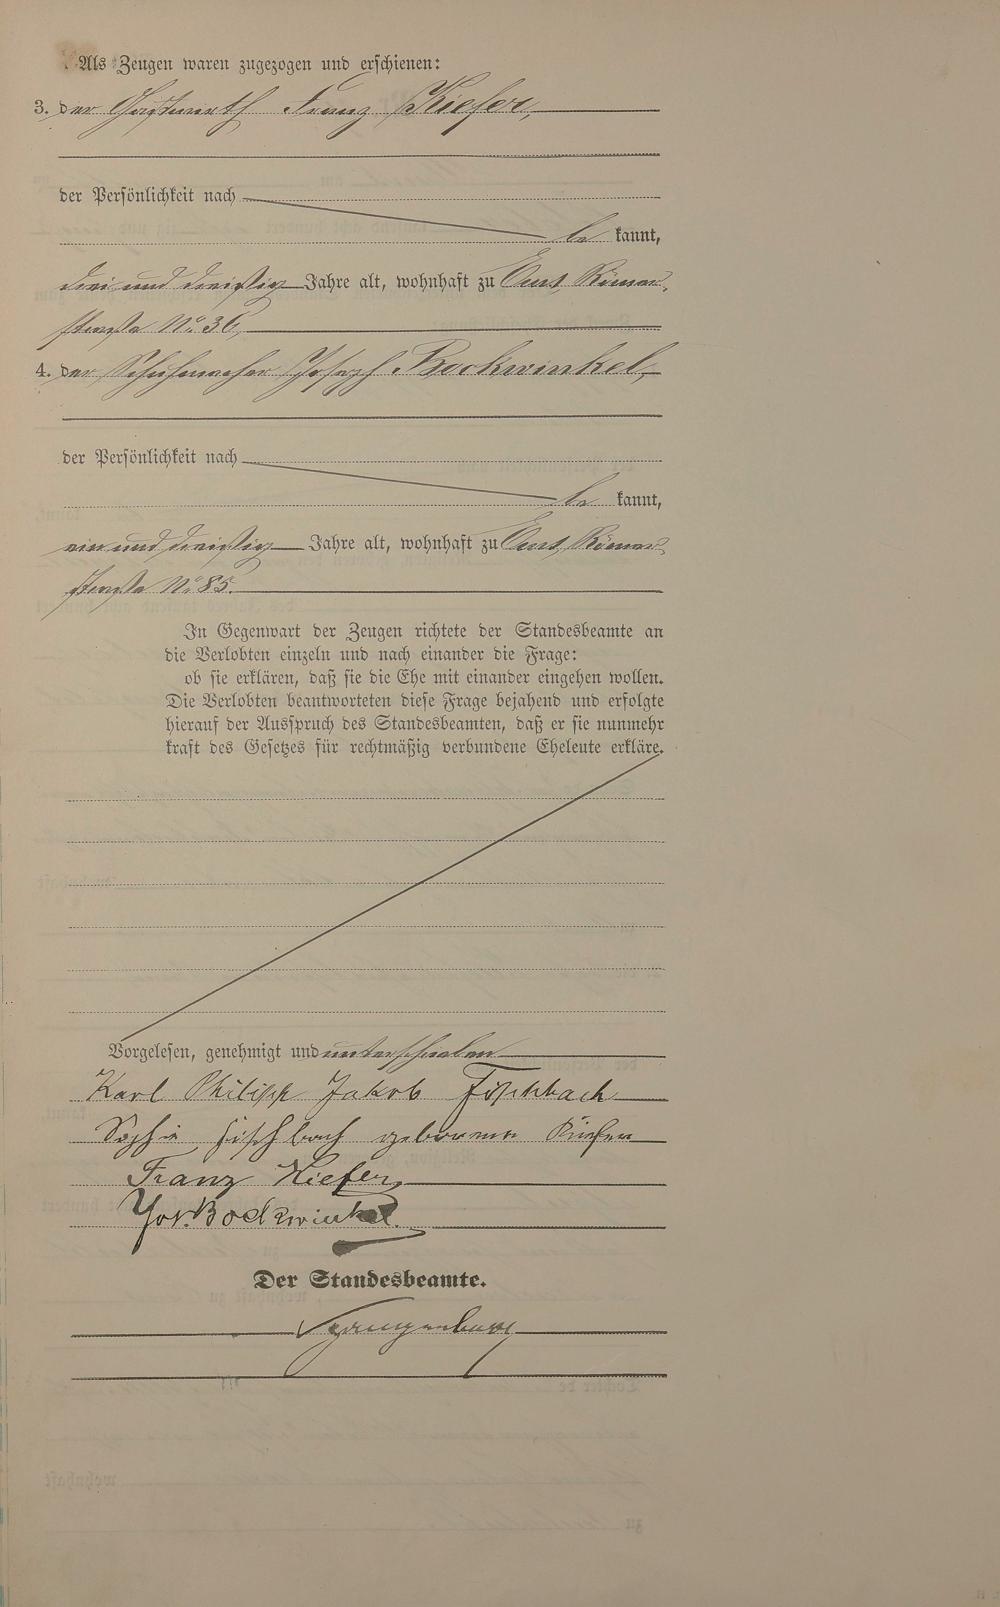 Als Zeugen waren zugezogen und erschienen:
3. der Gastwirth Franz Kiefer,
der Persönlichkeit nach
be kannt,
drei und dreißig Jahre alt, wohnhaft zu Ems, Römer-
straße No. 36,
4. der Schuhmacher Joseph Bockwinkel,
der Persönlichkeit nach
be kannt,
ein und dreißig Jahre alt, wohnhaft zu Ems, Römer-
straße No. 85.
In Gegenwart der Zeugen richtete der Standesbeamte an
die Verlobten einzeln und nach einander die Frage:
ob sie erklären, daß sie die Ehe mit einander eingehen wollen.
Die Verlobten beantworteten diese Frage bejahend und erfolgte
hierauf der Ausspruch des Standesbeamten, daß er sie nunmehr
kraft des Gesetzes für rechtmäßig verbundene Eheleute erkläre.
Vorgelesen, genehmigt und unterschrieben
Karl Philipp Jakob Fischbach
Sophie Fischbach geborenen Kiefer
Franz Kiefer
Jos. Bockwinkel.
Der Standesbeamte.